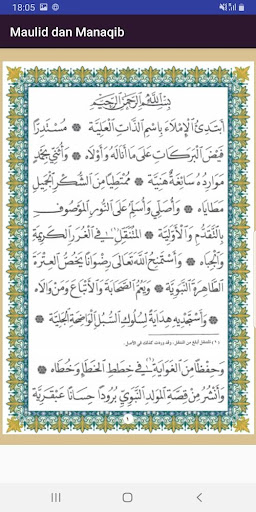 18:05
81%
Maulid dan Manaqib
بِسْمِ اللَّهِ الرَّحْمَنِ الرَّحِيمِ
أَبْتَدِئُ الْإِمْلَاءَ بِاسْمِ الذَّاتِ الْعَلِيَّةِ ۞ مُسْتَدِرًّا
فَيْضَ الْبَرَكَاتِ عَلَى مَا أَنَالَهُ وَأَوْلَاهُ ۞ وَأُثَنِّي بِحَمْدٍ
مَوَارِدُهُ سَائِغَةٌ هَنِيَّةٌ ۞ مُمْتَطِيًا مِنَ الشُّكْرِ الْجَمِيلِ
مَطَايَاهُ ۞ وَأُصَلِّي وَأُسَلِّمُ عَلَى النُّورِ الْمَوْصُوفِ
بِالتَّقَدُّمِ وَالْأَوَّلِيَّةِ ۞ الْمُتَنَقِّلِ(١) فِي الْغُرَرِ الْكَرِيمَةِ
وَالْجِبَاهِ ۞ وَأَسْتَمْنِحُ اللَّهَ تَعَالَى رِضْوَانًا يَخُصُّ الْعِتْرَةَ
الطَّاهِرَةَ النَّبَوِيَّةَ ۞ وَيَعُمُّ الصَّحَابَةَ وَالْأَتْبَاعَ وَمَنْ وَالَاهُ
۞ وَأَسْتَجْدِيهِ هِدَايَةً لِسُلُوكِ السُّبُلِ الْوَاضِحَةِ الْجَلِيَّةِ ۞
وَحِفْظًا مِنَ الْغَوَايَةِ فِي خِطَطِ الْخَطَإِ وَخُطَاهُ ۞
وَأَنْشُرُ مِنْ قِصَّةِ الْمَوْلِدِ النَّبَوِيِّ بُرُودًا حِسَانًا عَبْقَرِيَّةً
١